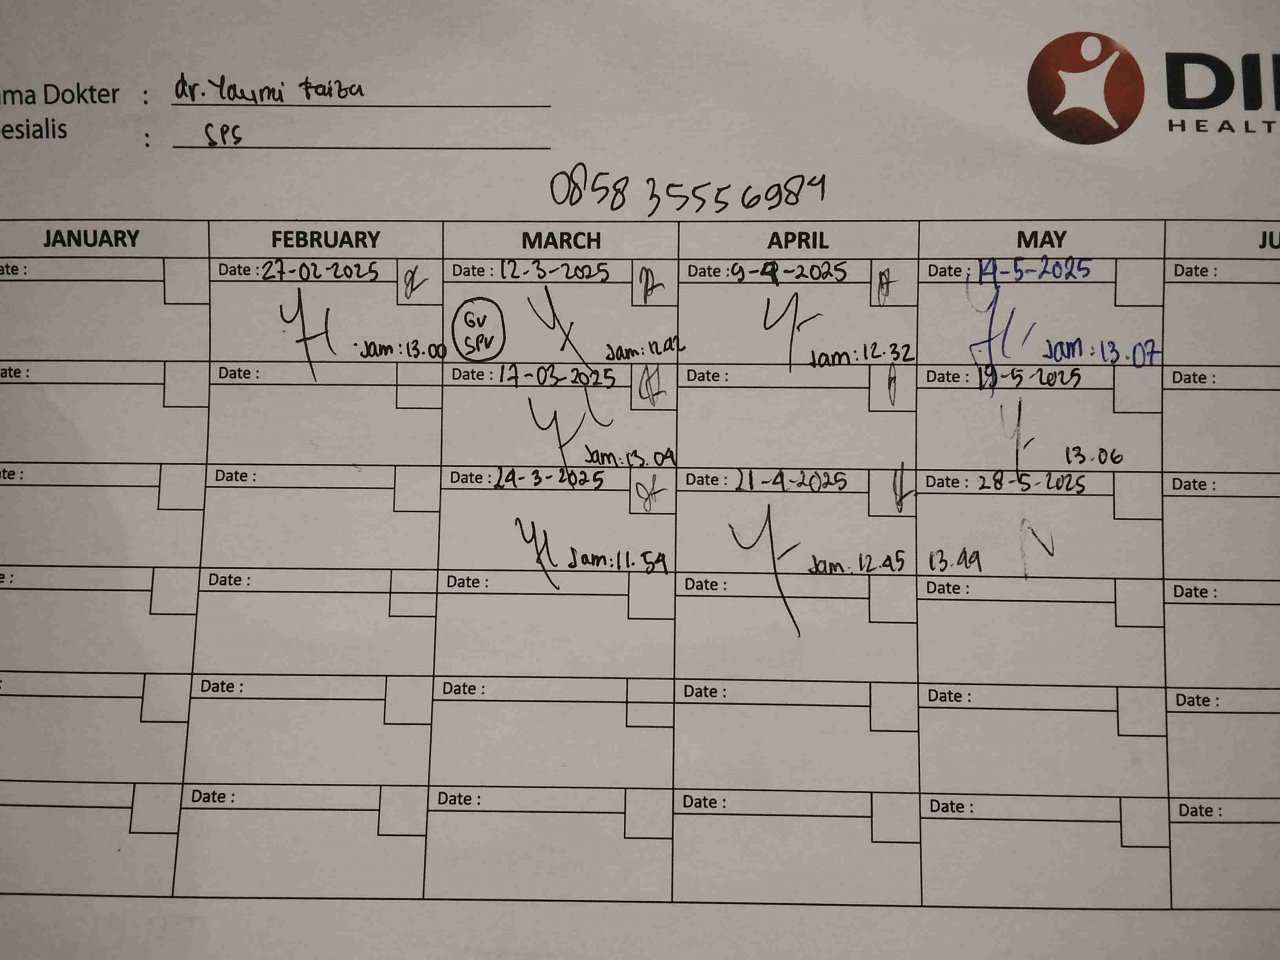 ma Dokter : dr. Yaumi Faiza
esialis : SPS
DI
HEALT
0858 35556984
JANUARY FEBRUARY MARCH APRIL MAY JU
ate : Date : 27-02-2025 Date : 12-3-2025 Date : 9-4-2025 Date : 14-5-2025 Date :
GV
SPV
Jam : 13.00 Jam : 12.42 Jam : 12.32 Jam : 13.07
ate : Date : Date : 17-03-2025 Date : Date : 19-5-2025 Date :
Jam : 13.04 13.06
ate : Date : Date : 24-3-2025 Date : 21-4-2025 Date : 28-5-2025 Date :
Jam : 11.54 Jam : 12.45 13.44
e : Date : Date : Date : Date : Date :
: Date : Date : Date : Date : Date :
Date : Date : Date : Date : Date :